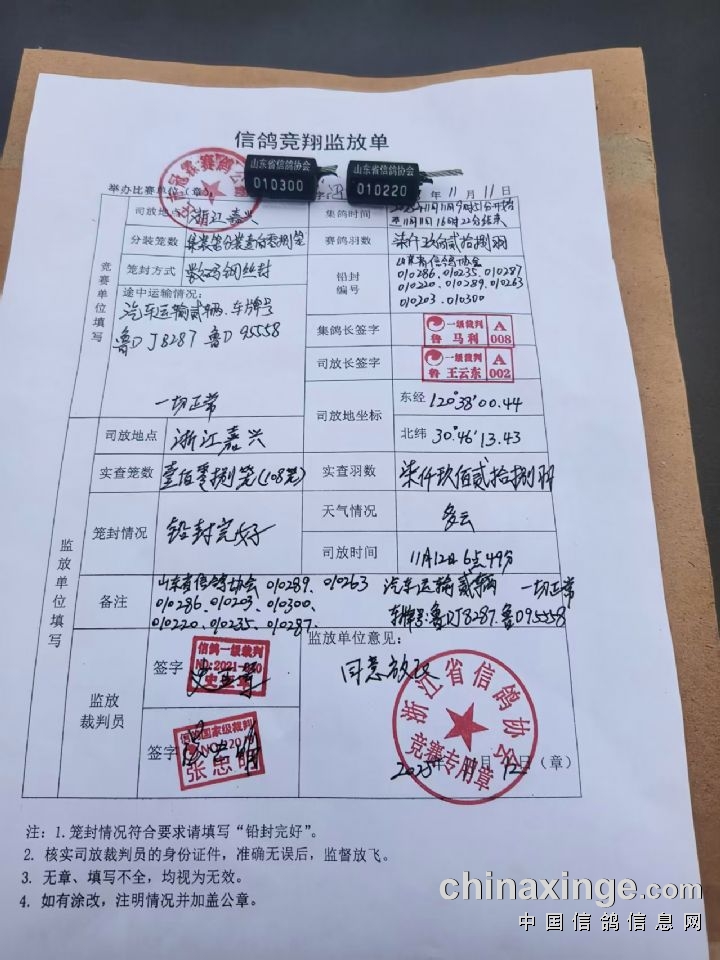 信鸽竞翔监放单
山东省信鸽协会
010300
山东省信鸽协会
010220
举办比赛单位:(章)
11月11日
竞赛单位填写
司放地点 浙江嘉兴
集鸽时间
至11月11日16时22分结束
分装笼数
赛鸽羽数 柒仟玖佰贰拾捌羽
笼封方式 数码钢丝封
铅封编号
山东省信鸽协会
010286、010235、010287
010220、010289、010263
010203、010300
途中运输情况:
汽车运输贰辆、车牌号
鲁DJ8287 鲁D95558
一切正常
集鸽长签字
一级裁判 A
鲁 马利 008
司放长签字
一级裁判 A
鲁 王云东 002
司放地坐标
东经 120°38′00.44
北纬 30°46′13.43
监放单位填写
司放地点 浙江嘉兴
实查笼数 壹佰零捌笼(108笼)
实查羽数 柒仟玖佰贰拾捌羽
笼封情况 铅封完好
天气情况 多云
司放时间 11月12日6点49分
备注
山东省信鸽协会 010289、010263
010286、010203、010300、
010220、010235、010287、
汽车运输贰辆 一切正常
车牌号:鲁DJ8287、鲁D95558
监放裁判员
签字
信鸽一级裁判
签字
国家级裁判
张忠明
监放单位意见:
同意放飞
浙江省信鸽协会
竞赛专用章
2025年11月12日(章)
注:1.笼封情况符合要求请填写“铅封完好”。
2. 核实司放裁判员的身份证件,准确无误后,监督放飞。
3. 无章、填写不全,均视为无效。
4. 如有涂改,注明情况并加盖公章。
chinaxinge.com
中国信鸽信息网